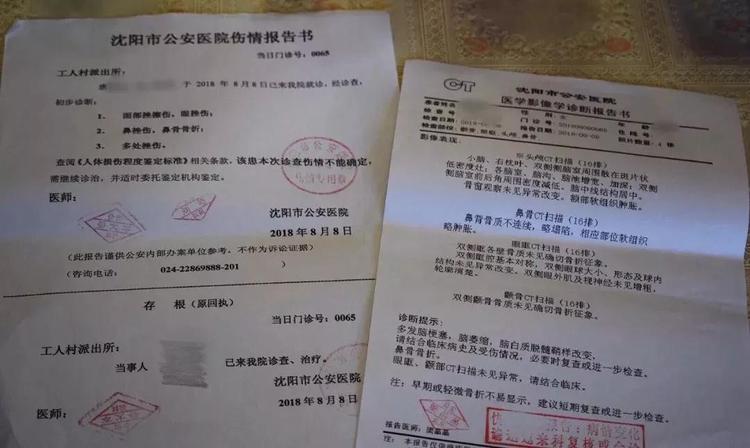 沈阳市公安医院伤情报告书
当日门诊号：0065
工人村派出所：
于 2018 年 8 月 8 日已来我院就诊，经诊查，
初步诊断：
1、 面部挫擦伤，眼挫伤；
2、 鼻挫伤，鼻骨骨折；
3、 多处挫伤。
查阅《人体损伤程度鉴定标准》相关条款，该患本次诊查伤情不能确定，
需继续诊治，并适时委托鉴定机构鉴定。
医师：
沈阳市公安医院
2018 年 8 月 8 日
（此报告谨供公安内部办案单位参考，不作为诉讼证据）
（咨询电话： 024-22869888-201 ）
存 根（原回执）
当日门诊号：0065
工人村派出所：
当事人 已来我院诊查、治疗。
沈阳市公安医院
2018 年 8 月 8 日
医师：
CT
沈阳市公安医院
医学影像学诊断报告书
患者姓名
性 别：女
年 龄：
检查号
门 诊 号：
住 院 号：
检查日期：2018-08-08
报告日期：2018-08-08
照片数量：4 张
检查部位：
影像表现：
头颅CT扫描（16排）
小脑、右枕叶、双侧侧脑室周围散在斑片状
低密度灶；各脑室、脑沟、脑池增宽、加深；双侧
侧脑室前后角周围密度减低。脑中线结构居中。
骨窗观察未见异常改变。额部软组织肿胀。
鼻骨CT扫描（16排）
鼻骨骨质不连续，略塌陷，相应部位软组织
略肿胀。
眼眶CT扫描（16排）
双侧眶各壁骨质未见确切骨折征象。
双侧眶腔基本对称，双侧眼球大小、形态及球内
结构未见异常改变。双侧眼外肌及视神经未见增粗，
轮廓清楚。
颧骨CT扫描（16排）
双侧颧骨骨质未见确切骨折征象。
诊断提示：
多发脑梗塞，脑萎缩，脑白质脱髓鞘样改变，
请结合临床病史及受伤情况，必要时复查或进一步检查。
鼻骨骨折。
眼眶、颧部CT扫描未见异常，请结合临床。
注：早期或轻微骨折不易显示，建议短期复查或进一步检查。
报告医师：